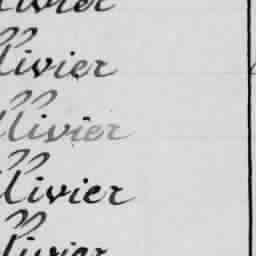 llivier
llivier
llivier
llivier
llivier